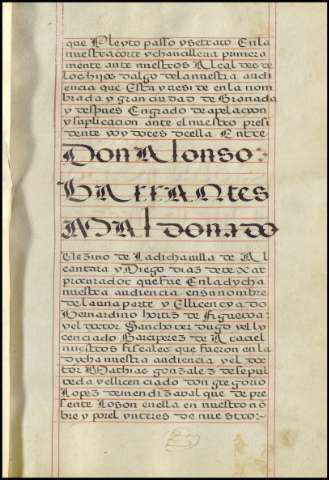 que Pleyto passo y se trato En la
nuestra corte y chançilleria primera
mente ante nuestros Alcaldes de
los hijos dalgo de la nuestra audi
encia que Esta y reside en la nom
brada y gran ciudad de Granada
y despues En grado de apelacion
y suplicacion ante el nuestro presi
dente y oydores de ella Entre
Don Alonso
BARRANtes
MALdonado
Vezino de La dicha villa de Al
cantara y Diego dias de
procurador que fue En la dycha
nuestra audiencia en su nombre
de la una parte y El licenciado
Bernardino hortiz de Figueroa
y el dotor Sancho de y el ly
cenciado Garci perez de
nuestros fiscales que fueron en la
dycha nuestra audiencia y el doc
tor Mathias gonzalez de sepul
veda y el licenciado don gregorio
Lopez de mendizaval que de pre
sente Lo son en ella en nuestro nõ
bre y por el ynteres de nuestro